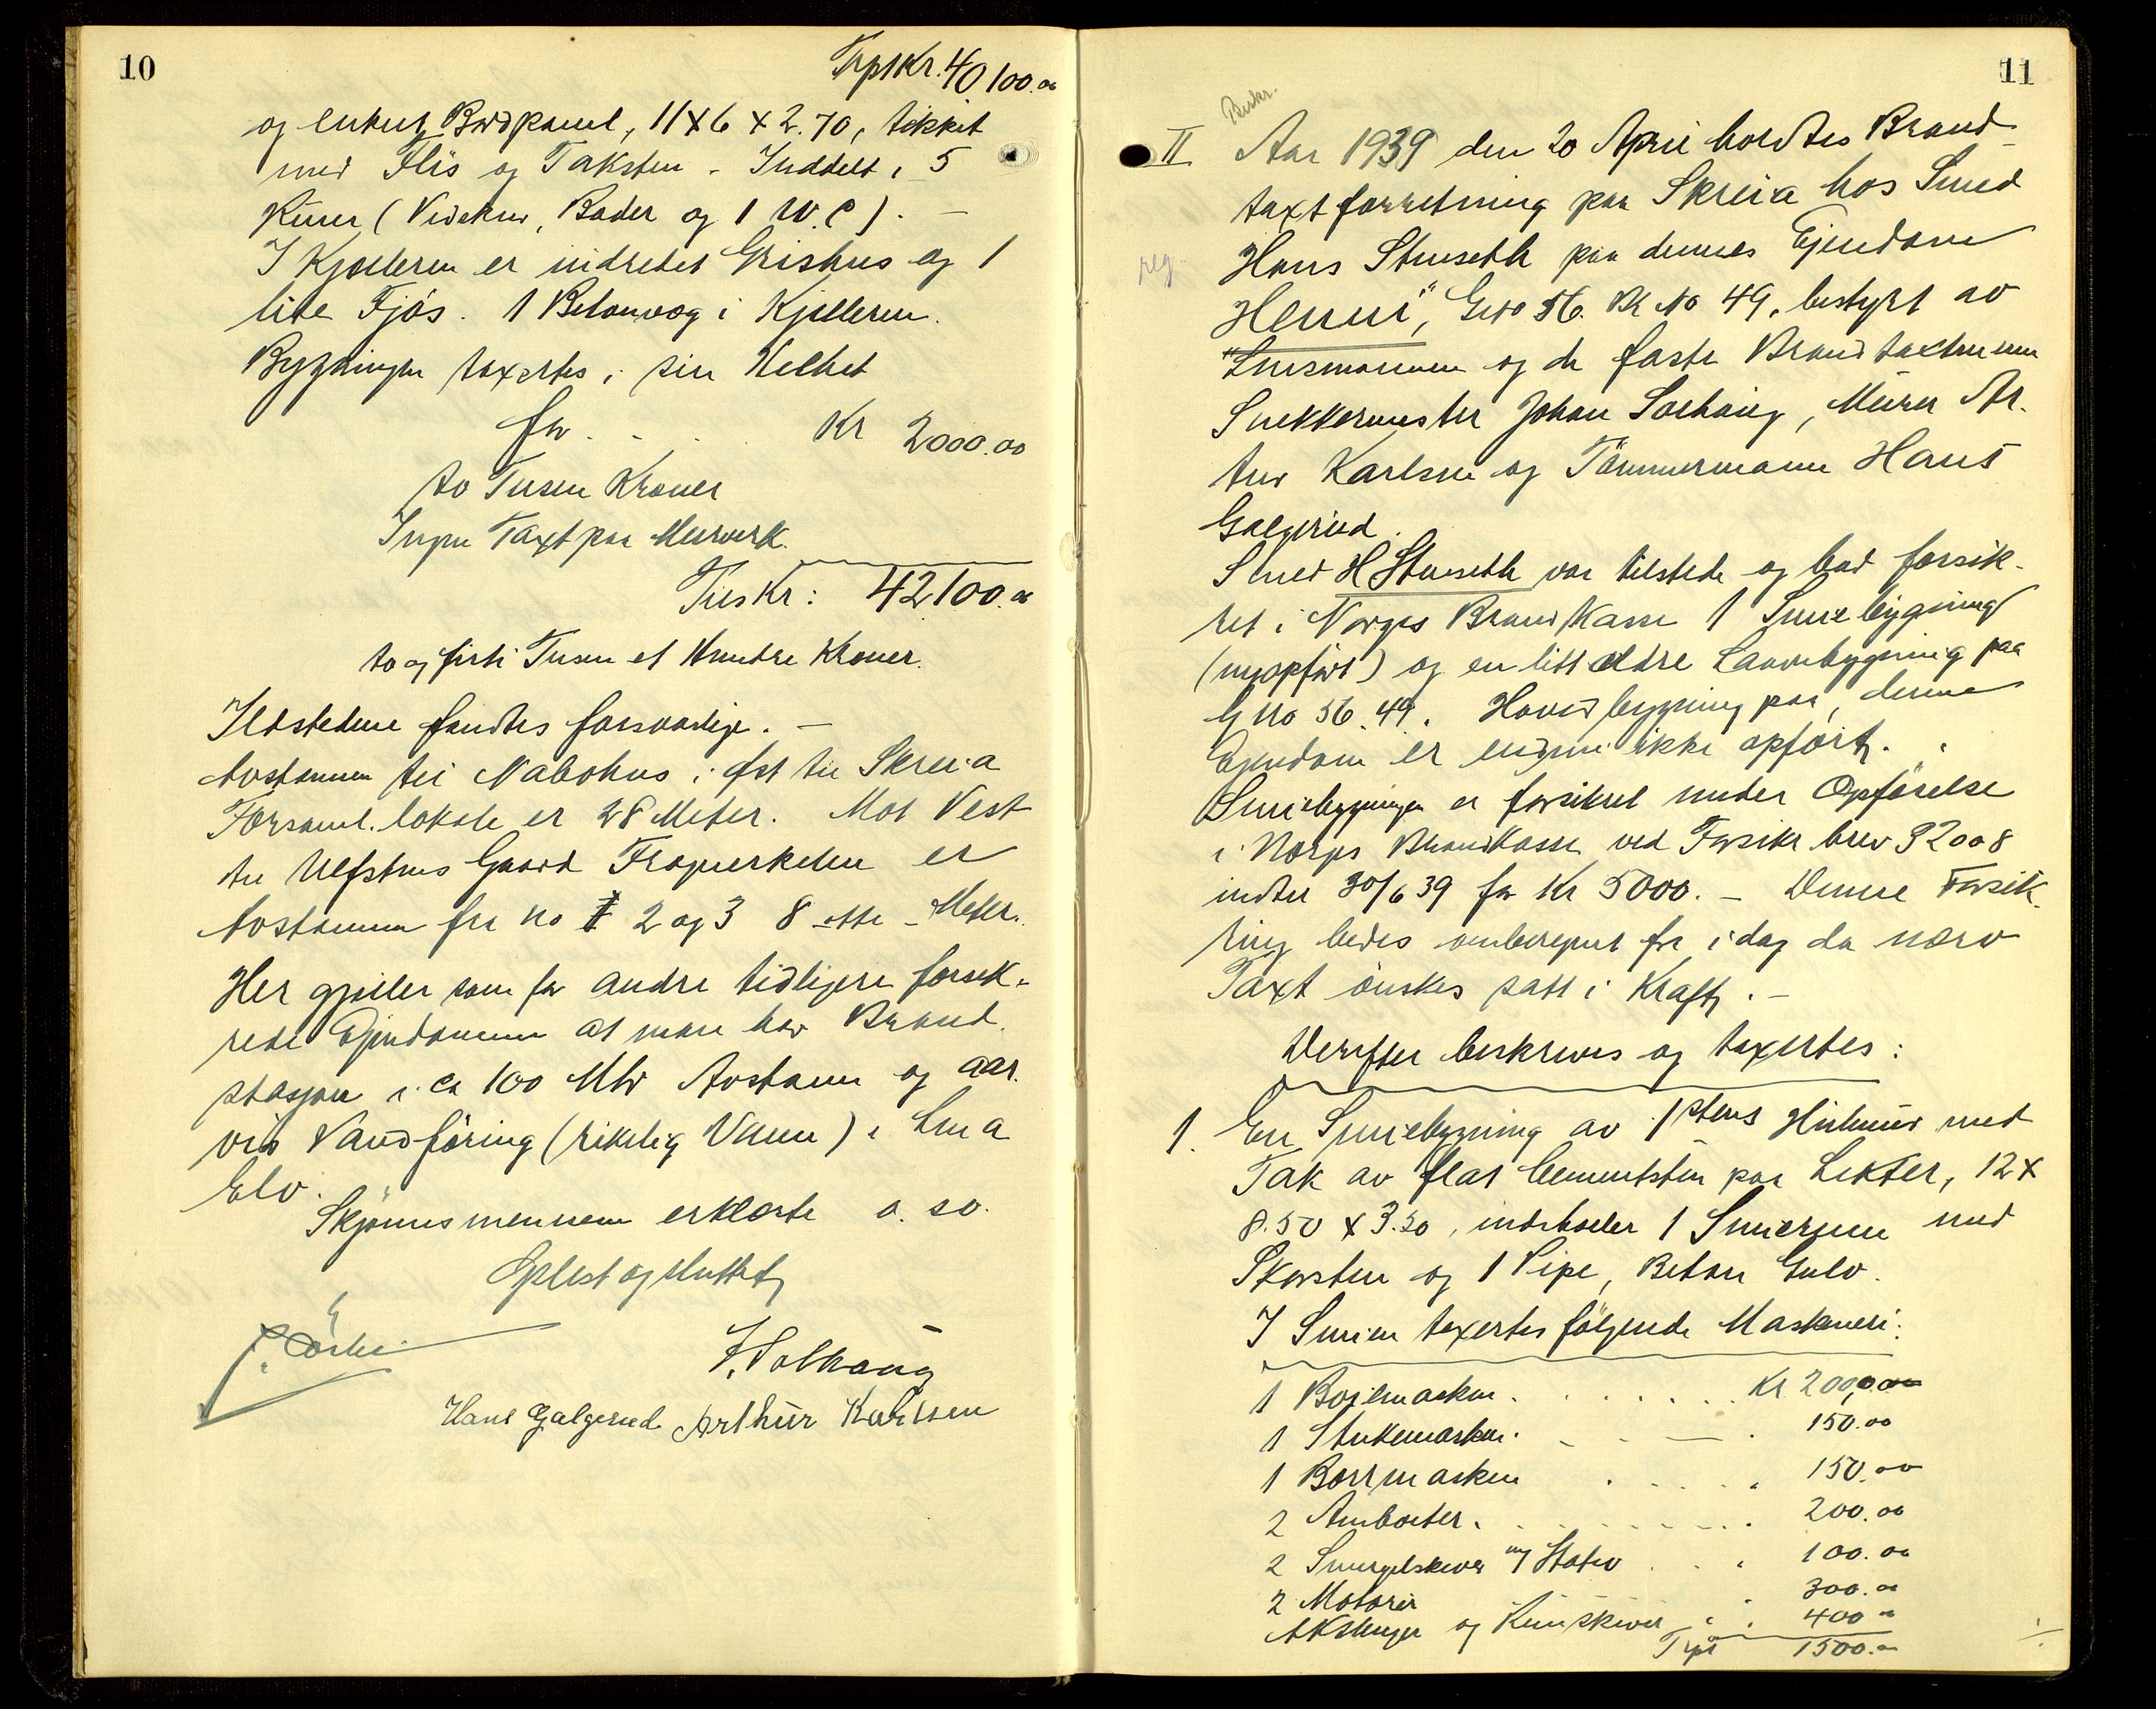 10
Trpt Kr. 40100.00
og enkelt Bordpanel, 11 x 6 x 2.70, tekket
med Flis og Taksten - Inddelt i 5
Rum (Vedskur, Boder og 1 W.C). -
I Kjælleren er indredet Grishus og 1
lite Fjós. 1 Betonvæg i Kjelleren.
Bygningen taxertes i sin Helhet
for . . . Kr 2000.00
to Tusen Kroner
Ingen Taxt paa Murverk.
Tils Kr: 42100.00
to og firti Tusen et Hundre Kroner.
Ildstedene fandtes forsvarlige. -
Avstannen til Nabohus i Øst til Skreia
Forsaml. lokale er 28 Meter. Mot Vest
til Ulfstens Gaard
Avstannen fra no 2 og 3 8 - otte - Meter.
Her gjelder som for andre tidligere forsik-
rede Ejendommer at man har Brand-
stasjon i ca 100 Mtr Avstann og aar.
vis Vandföring (rikelig Vann) i Lena
Elv.
Skjønnsmennene erklærte o. sv.
Oplest og sluttet
J. Solhaug
Hans Galgerud Arthur Karlsen
11
Beskr.
II Aar 1939 den 20 April holdtes Brand-
taxtforretning paa Skreia hos Smed
reg. Hans Stenseth paa dennes Ejendom
"Henni", Gno 56. Br No 49, bestyrt av
Lensmannen og de faste Brandtaxtmenn
Snekkermester Johan Solhaug, Murer Ar-
tur Karlsen og Tömmermann Hans
Galgerud.
Smed H Stenseth var tilstede og bad forsik-
ret i Norges Brandkasse 1 Smiebygning
(nyopført) og en litt ældre Laavebygning paa
G no 56. 49. Hovedbygning paa denne
Ejendom er endnu ikke opført.
Smiebygningen er forsikret under Opförelse
i Norges Brandkasse ved Forsikr brev 32008
indtil 30/6 39 for Kr 5000. - Denne Forsik-
ring bedes omberegnet fra i dag da nærv
Taxt önskes satt i Kraft. -
Derefter beskrives og taxertes:
1. En Smiebygning av 1 stens Hulmur med
Tak av flat Cementsten paa Lekter, 12 x
8.50 x 3.50, indeholder 1 Smierum med
Skorsten og 1 Pipe, Beton Gulv.
I Smien taxertes følgende Maskineri:
1 Boiemaskin . . . . . Kr 200,00
1 Stukemaskin . - - — . 150.00
1 Borrmaskin . . . . . 150.00
2 Ambolter . . . . . . . 200.00
2 Smergelskiver m/ Stativ . . . 100.00
2 Motorer 300.00
Akslinger og Remskiver . . 400 00
Trpt 1500.00